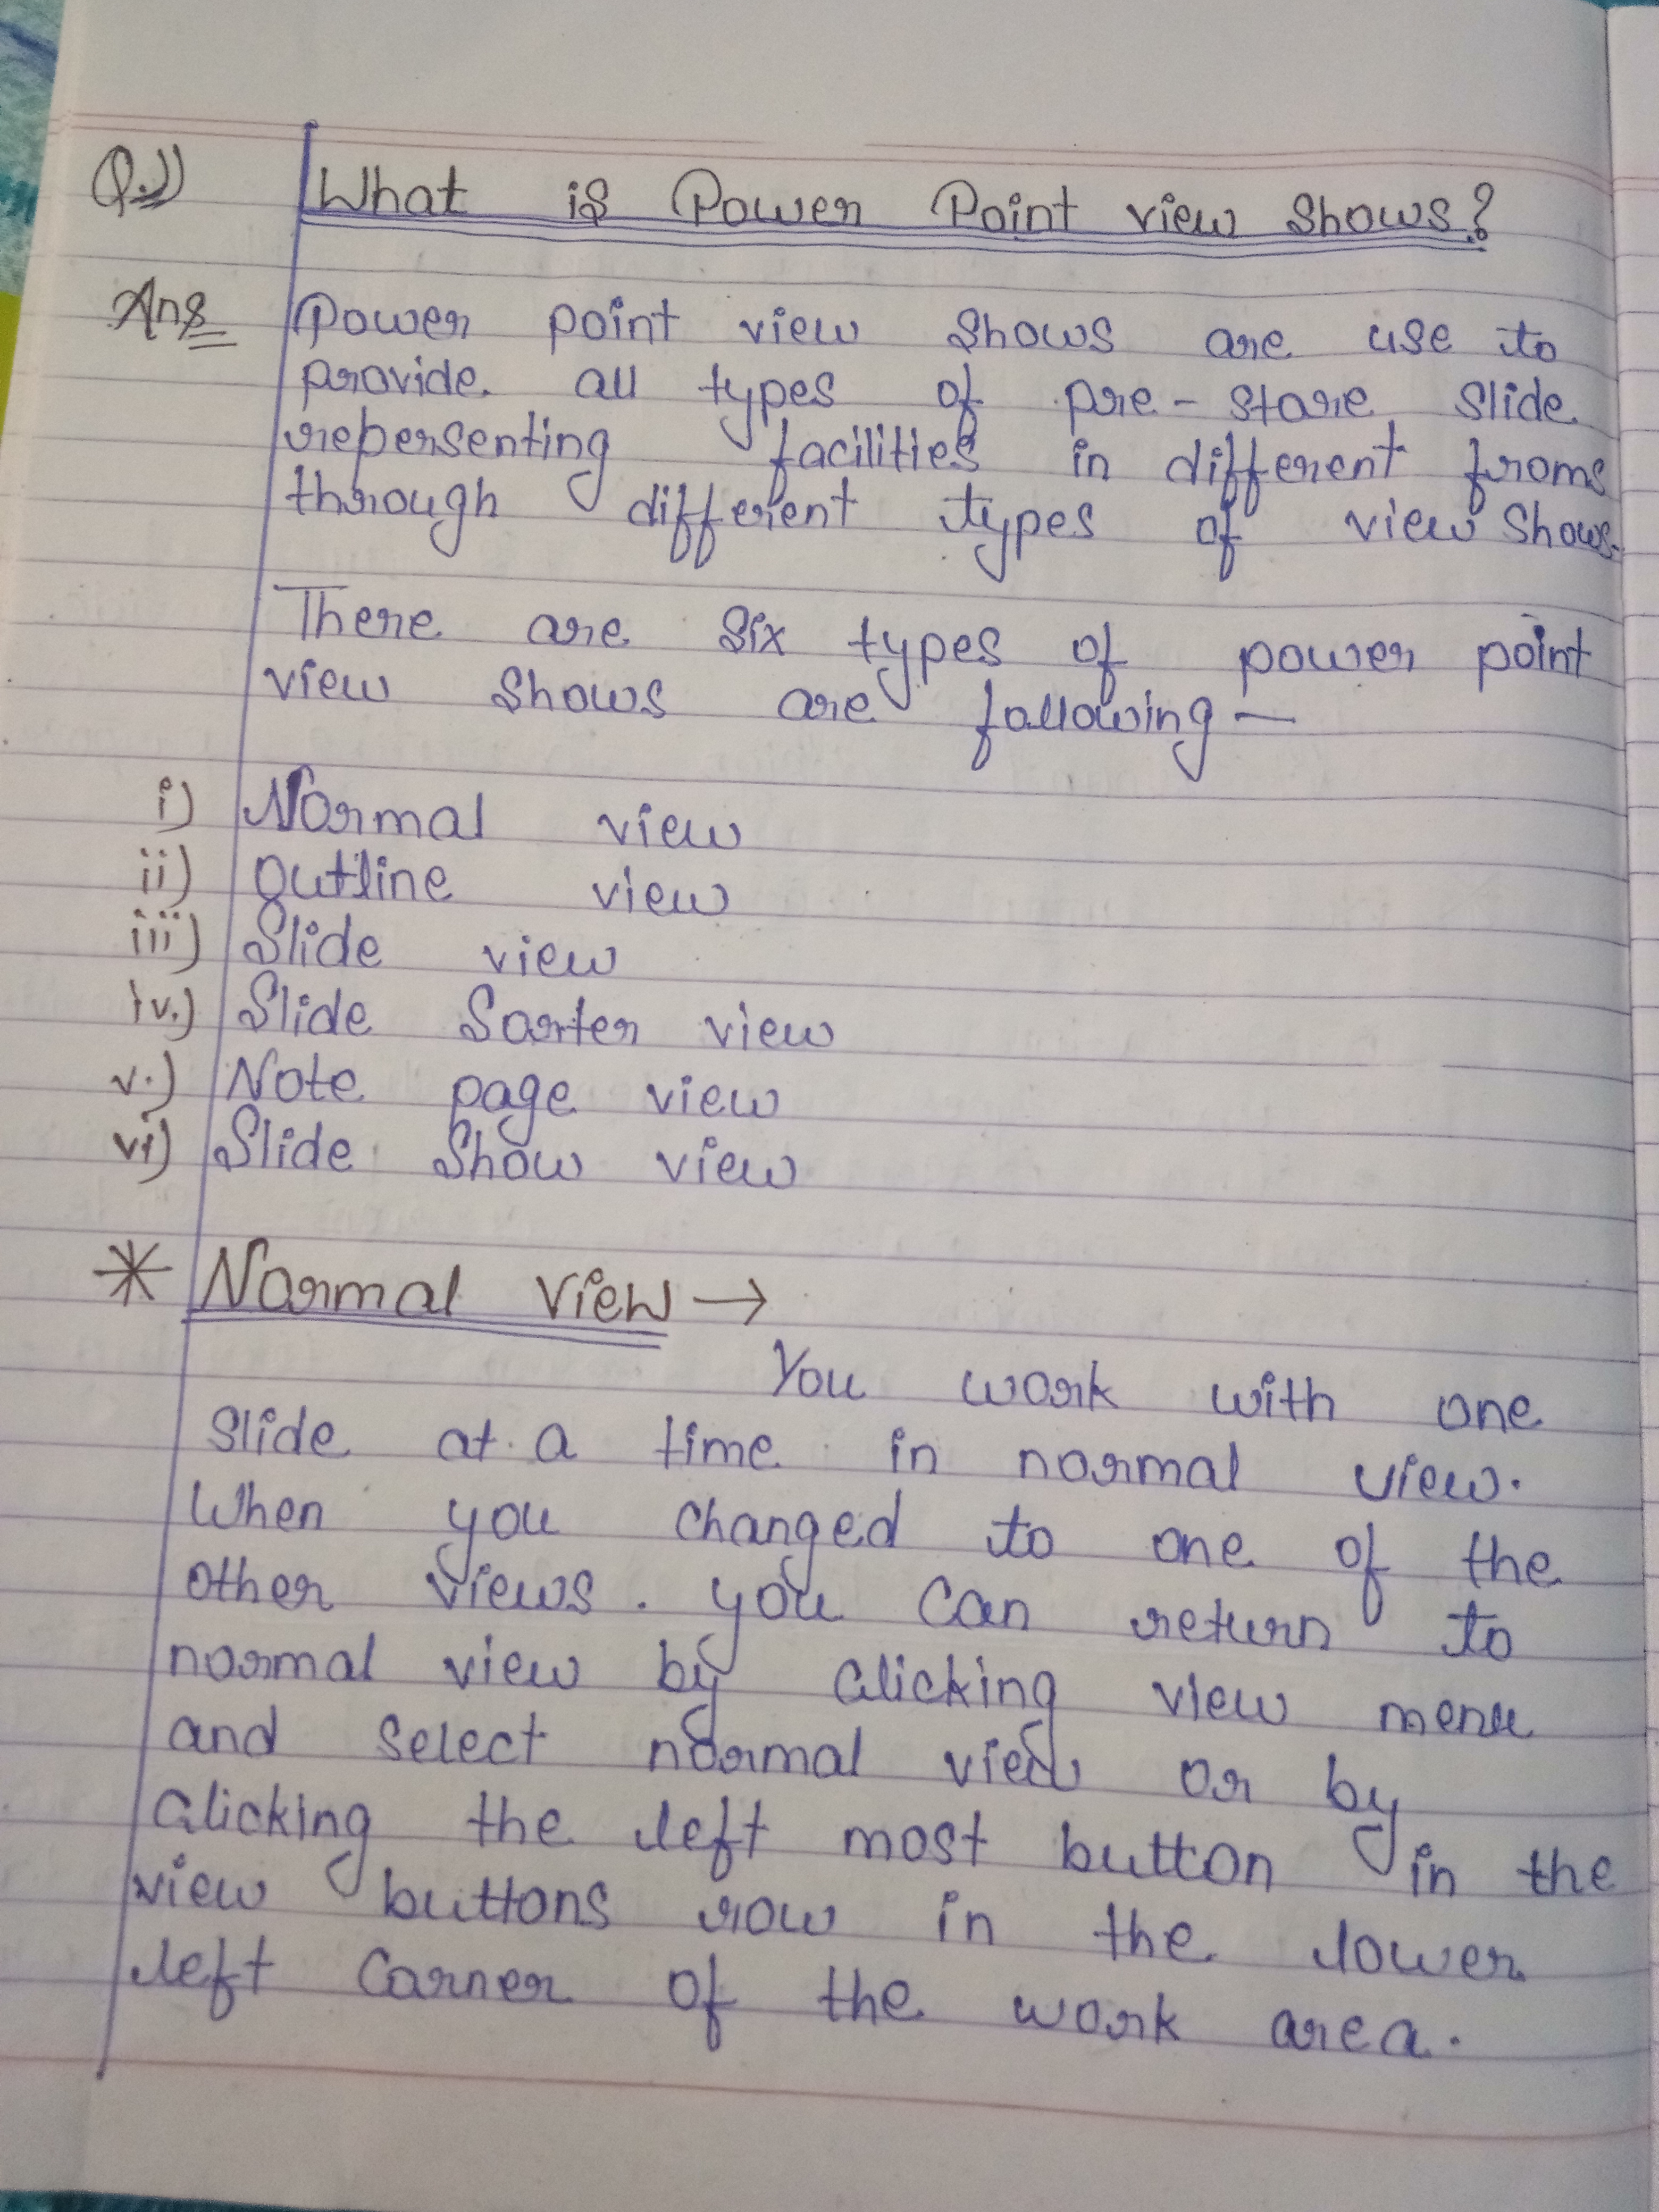 Q.1) What is Power Point view shows?
Ans Power point view shows are use to
provide all types of pre-store slide
repersenting facilities in different froms
through different types of view shows.
There are six types of power point
view shows are following —
i) Normal view
ii) Outline view
iii) Slide view
iv.) Slide Sorter view
v.) Note page view
vi) Slide Show view
* Normal View →
You work with one
slide at a time in normal view.
When you changed to one of the
other views. you can return to
normal view by clicking view menu
and select normal view or by
clicking the left most button in the
view buttons row in the lower
left corner of the work area.